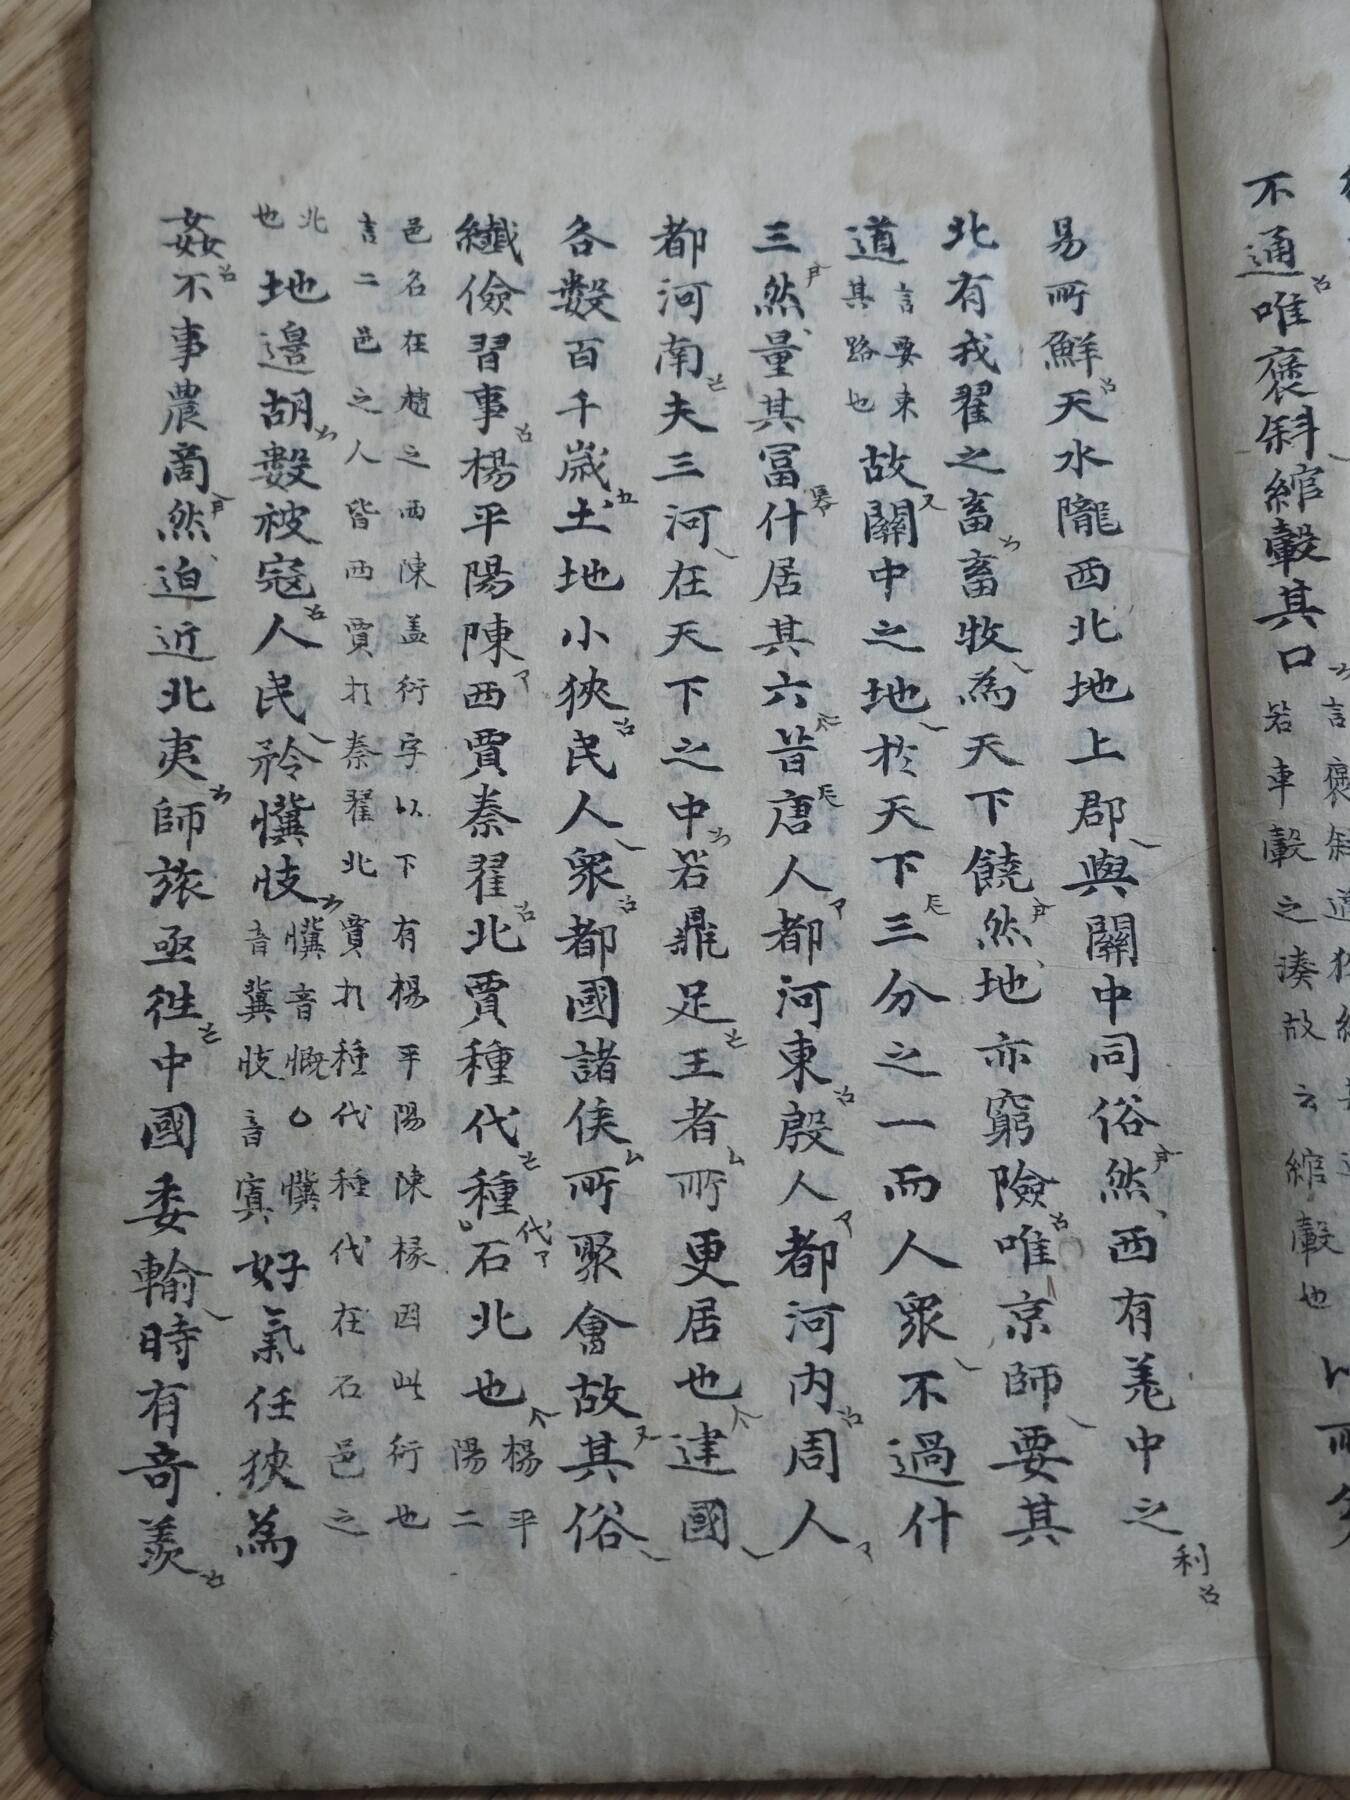 不通唯褒斜綰轂其口
若車轂之湊故云綰轂也
易所鮮天水隴西北地上郡與關中同俗然西有羌中之利
北有戎翟之畜畜牧為天下饒然地亦窮險唯京師要其
道言要束其路也故關中之地於天下三分之一而人衆不過什
三然量其冨什居其六昔唐人都河東殷人都河內周人
都河南夫三河在天下之中若鼎足王者所更居也建國
各數百千歲土地小狹民人衆都國諸侯所聚會故其俗
纖儉習事楊平陽陳西賈秦翟北賈種代種代石北也楊平陽二
邑名在趙之西陳盖衍字以下有楊平陽陳椽因此衍也
言二邑之人皆西賈於秦翟北賈於種代種代在石邑之
北也地邊胡數被寇人民矜懻忮懻音慨○懻音冀忮音寘好氣任狹為
姦不事農商然迫近北夷師旅亟往中國委輸時有奇羨